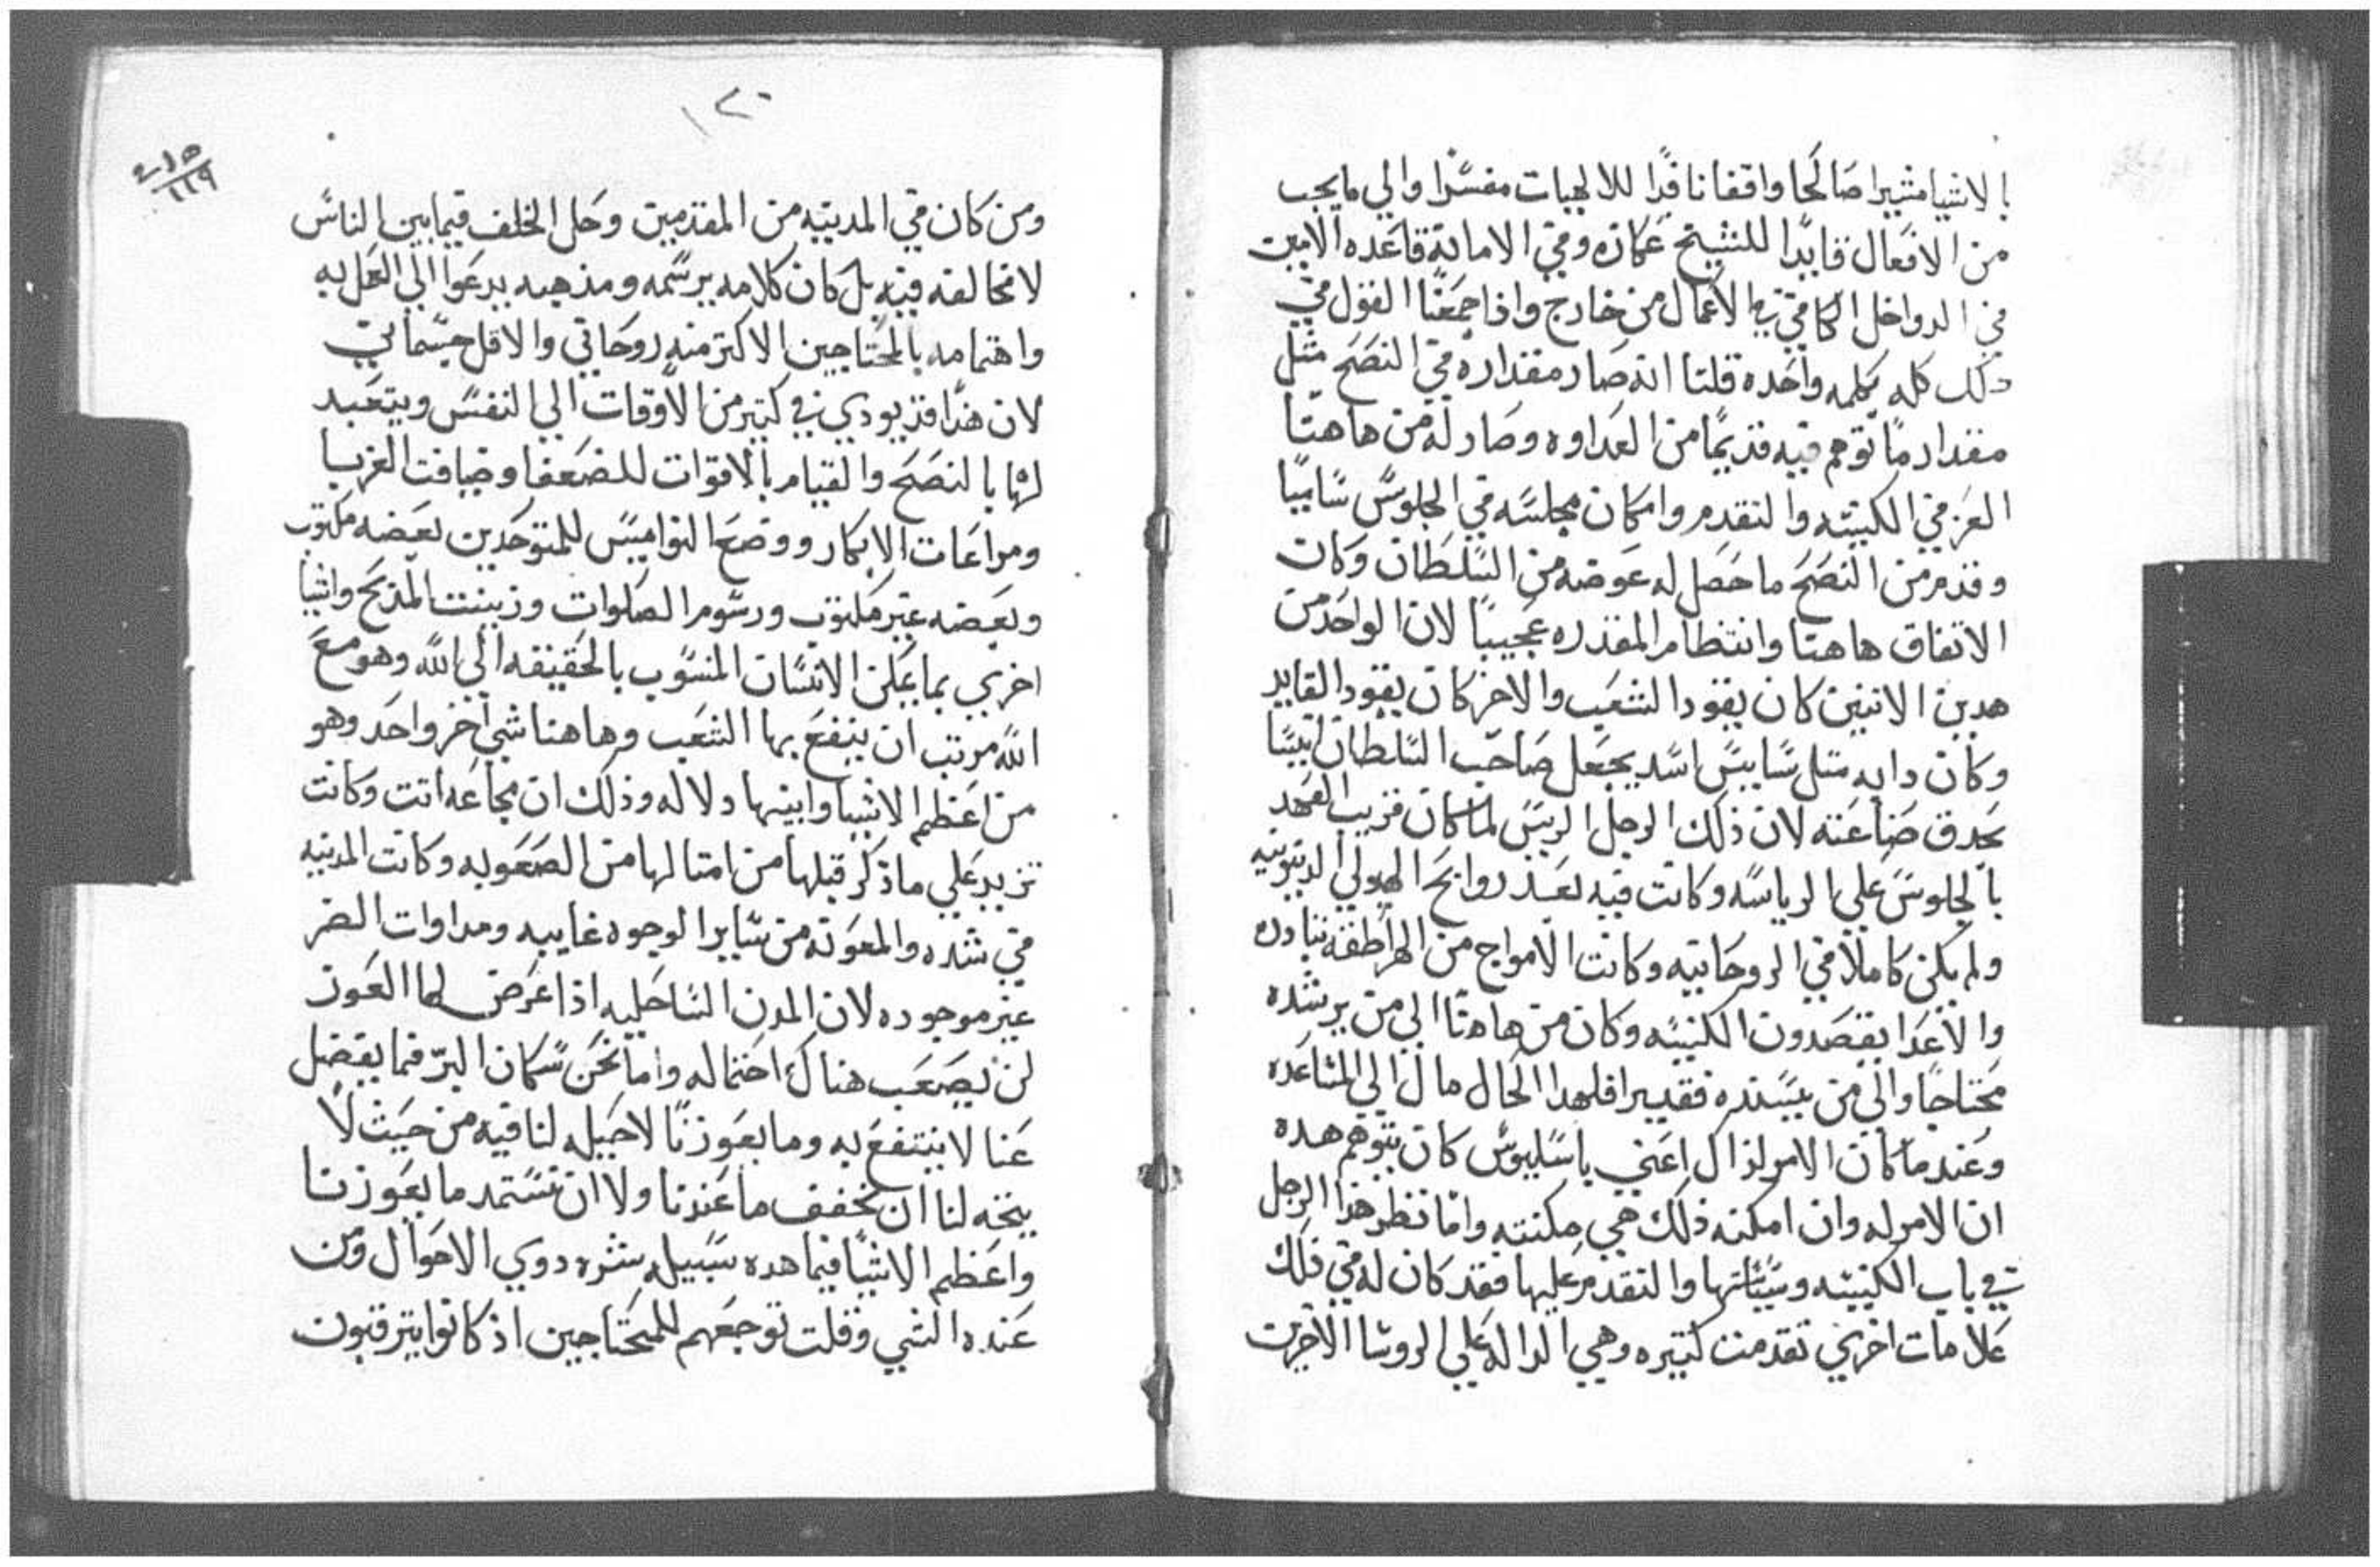 بالاشيا مشيرا صَالحَا واقفا نافدًا للالهيات مفسّرا والي مايجب
من الافعَال قايدًا للشيخ عَكازه وفي الامانة قاعَده الامين
في الدواخل الكافي في الاعمال من خارج واذا جمَعَنا القول في
دلك كله بكلمه واحَده قلنا انه صَار مقداره في النصَح مثل
مقدار ما توهم فيه قديمًا من العَداوه وصَار له من هاهنا
العَز في الكنيسَه والتقدم وامكان مجلسَه في الجلوسَ سَاميًا
وقدم من النصَحَ ما حَصَل له عَوضه من السَلطَان وكان
الاتفاق هاهنا وانتظام المقدره عَجيبًا لان الواحَد من
هدين الاتنين كان يقود الشعَب والاخر كان يقود القايد
وكان دايه متل سَايسَ اسَد يجعَل صَاحَب السَلطان انيسًا
بحدق صَناعَته لان ذلك الرجل الريسَ لما كان قريب العَهد
بالجلوسَ عَلي الرياسَه وكانت فيه بعَد روايح الهيولي الدنيويه
ولم يكن كاملا في الروحَانيه وكانت الامواج من الهراطقه تبادره
والاعَدا يقصَدون الكنيسَه وكان من هاهنا الي من يرشده
محَتاجَا والي من يسَنده فقيرا فلهدا الحَال مال الي المسَاعَده
وعَند ما كان الامر لذاك اعَني باسَليوسَ كان يتوهم هده
ان الامر له وان امكنه ذلك هي مكنته وامّا نظر هذا الرجل
في باب الكنيسَه وسَيَاستها والتقدم عَليها فقد كان له في ذلك
عَلامات اخري تقدمت كتيره وهي الداله عَلي الروسَا الاخرين
١٢٠
٢١٥
١١٩
ومن كان في المدينه من المقدمين وحَل الخلف فيما بين الناسَ
لا مخالفه فيه بل كان كلامه برسَمه ومذهبه يدعَوا الي العَمل به
واهتمامه بالمحَتاجين الاكتر منه روحَاني والاقل جسَماني
لان هذا قد يودي في كتير من الاوقات الي النفسَ ويتعَبد
لها بالنصَحَ والقيام بالاقوات للضعَفا وضيافت الغربا
ومراعَات الابكار ووضعَ النواميسَ للمتوحَدين بعَضه مكتوب
وبعَضه عَير مكتوب ورسَوم الصَلوات وزينت المذبحَ واشيا
اخري بما يمكن الانسَان المنسَوب بالحَقيقه الي الله وهو معَ
الله مرتب ان ينفعَ بها الشعَب وهاهنا شي اخر واحَد وهو
من اعَظم الاشيا وابينها دلاله وذلك ان مجاعَه اتت وكانت
تزيد عَلي ما ذكر قبلها من امتالها من الصَعَوبه وكانت المدينه
في شده والمعَونه من سَاير الوجوه غايبه ومداوات الضر
غير موجوده لان المدن السَاحَليه اذا عَرض لها العَوز
لن يصَعَب هناك احَتماله واما نحَن سَكان البر فما يفضل
عَنا لا ينتفعَ به وما يعَوزنا لا حَيله لنا فيه من حَيث لا
يتجه لنا ان نخفف ما عَندنا ولا ان نسَتمد ما يعَوزنا
واعَظم الاشيا فيما هده سَبيله شره دوي الاحَوال ومن
عَنده الشي وقلت توجعَهم للمحَتاجين اذ كانوا يترقبون